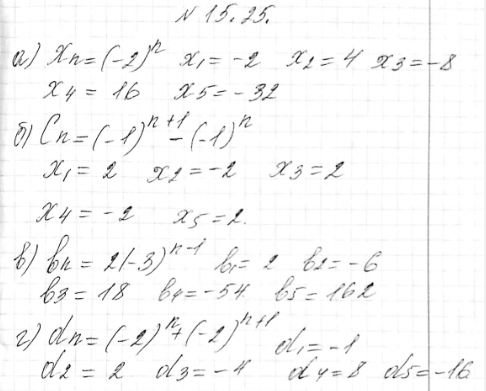 N 15.25.
а) xn = (-2)^n x1 = -2 x2 = 4 x3 = -8
x4 = 16 x5 = -32
б) Cn = (-1)^n+1 - (-1)^n
x1 = 2 x2 = -2 x3 = 2
x4 = -2 x5 = 2.
в) bn = 2(-3)^n-1 b1 = 2 b2 = -6
b3 = 18 b4 = -54 b5 = 162
г) dn = (-2)^n + (-2)^n+1 d1 = -1
d2 = 2 d3 = -4 d4 = 8 d5 = -16